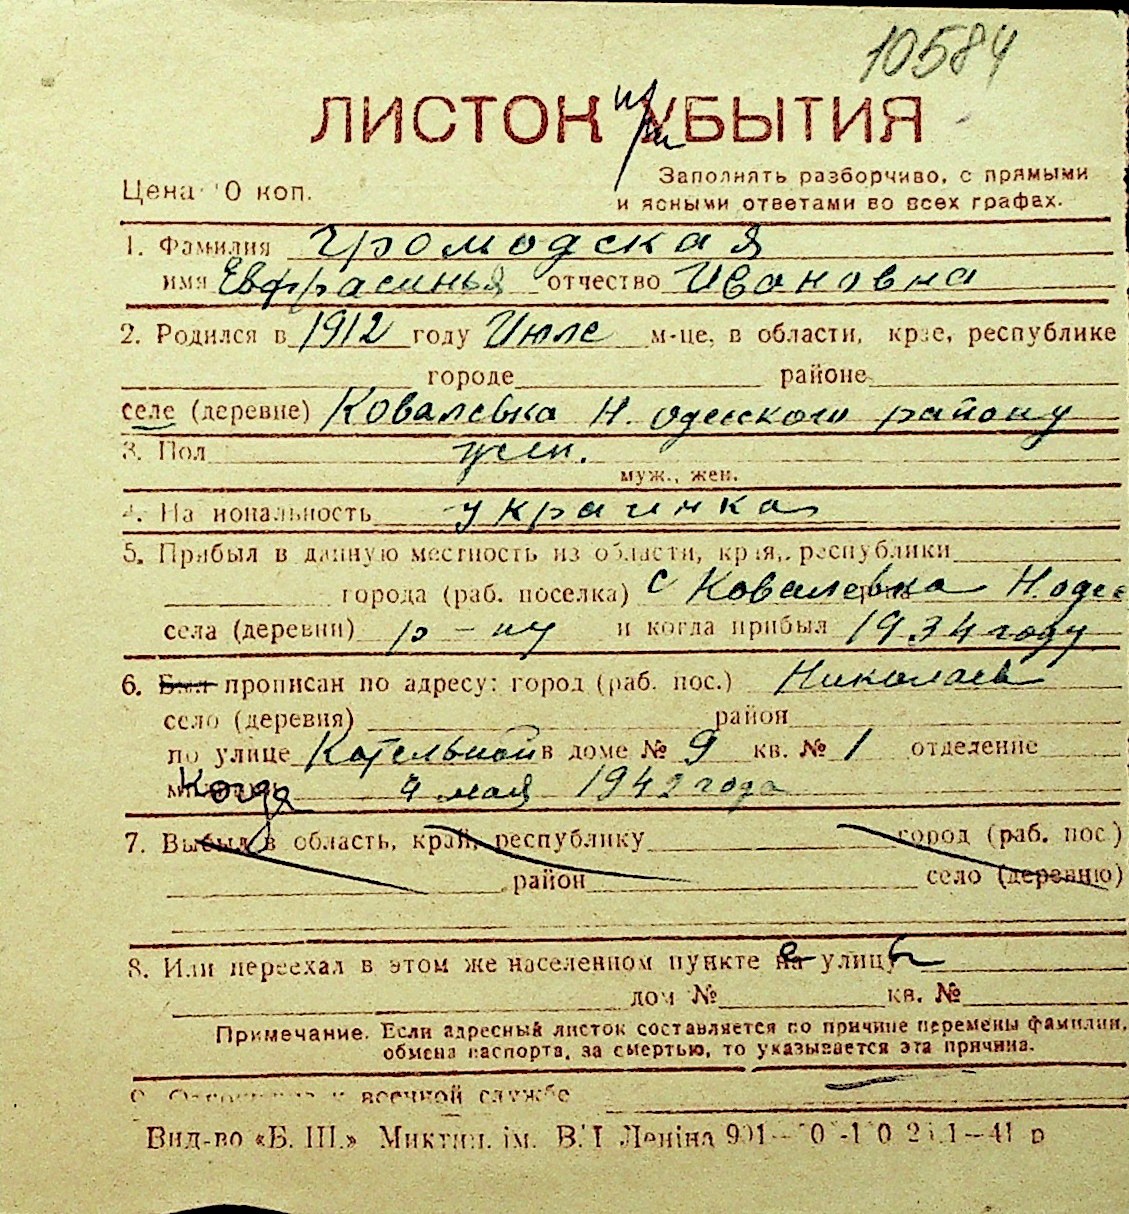 10584
ЛИСТОК УБЫТИЯ
при
Цена 10 коп.
Заполнять разборчиво, с прямыми
и ясными ответами во всех графах.
1. Фамилия Громодская
имя Евфрасинья отчество Ивановна
2. Родился в 1912 году Июле м-це, в области, крае, республике
городе районе
селе (деревне) Ковалевка Н. одесского району
3. Пол жен.
муж., жен.
4. Национальность украинка
5. Прибыл в данную местность из области, края, республики
города (раб. поселка) с Ковалевка Н. одес
села (деревни) р-ну и когда прибыл 1934 году
6. Был прописан по адресу: город (раб. пос.) Николаев
село (деревня) район
по улице Котельной в доме № 9 кв. № 1 отделение
Когда 4 мая 1942 года
7. Выбыл в область, край, республику город (раб. пос.)
район село (деревню)
8. Или переехал в этом же населенном пункте на улицу
дом № кв. №
Примечание. Если адресный листок составляется по причине перемены фамилии,
обмена паспорта, за смертью, то указывается эта причина.
9. военной службе
Вид-во «Б. Ш.» Миктип. ім. В. І Леніна